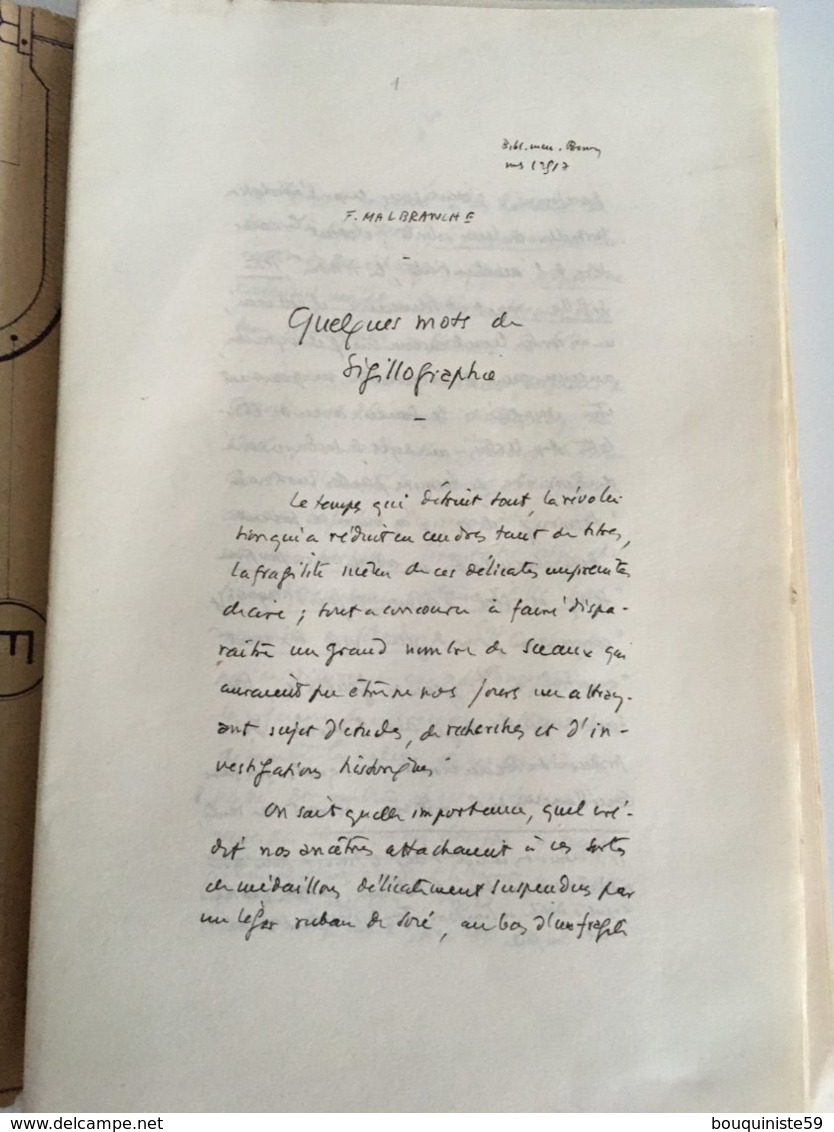 1
Bibl. mun.
ms
F. MALBRANCHE
-
Quelques mots de
Sigillographie
-
Le temps qui détruit tout, la révolu
tion qui a réduit en cendres tant de titres,
la fragilité même de ces délicates empreintes
de cire ; tout a concouru à faire dispa-
raître un grand nombre de sceaux qui
auraient pu être de nos jours un attray-
ant sujet d'études, de recherches et d'in-
vestigations historiques.
On sait quelle importance, quel cré-
dit nos ancêtres attachaient à ces sortes
de médaillons délicatement suspendus par
un léger ruban de soie, au bas d'un fragile
E
www.delcampe.net
bouquiniste59